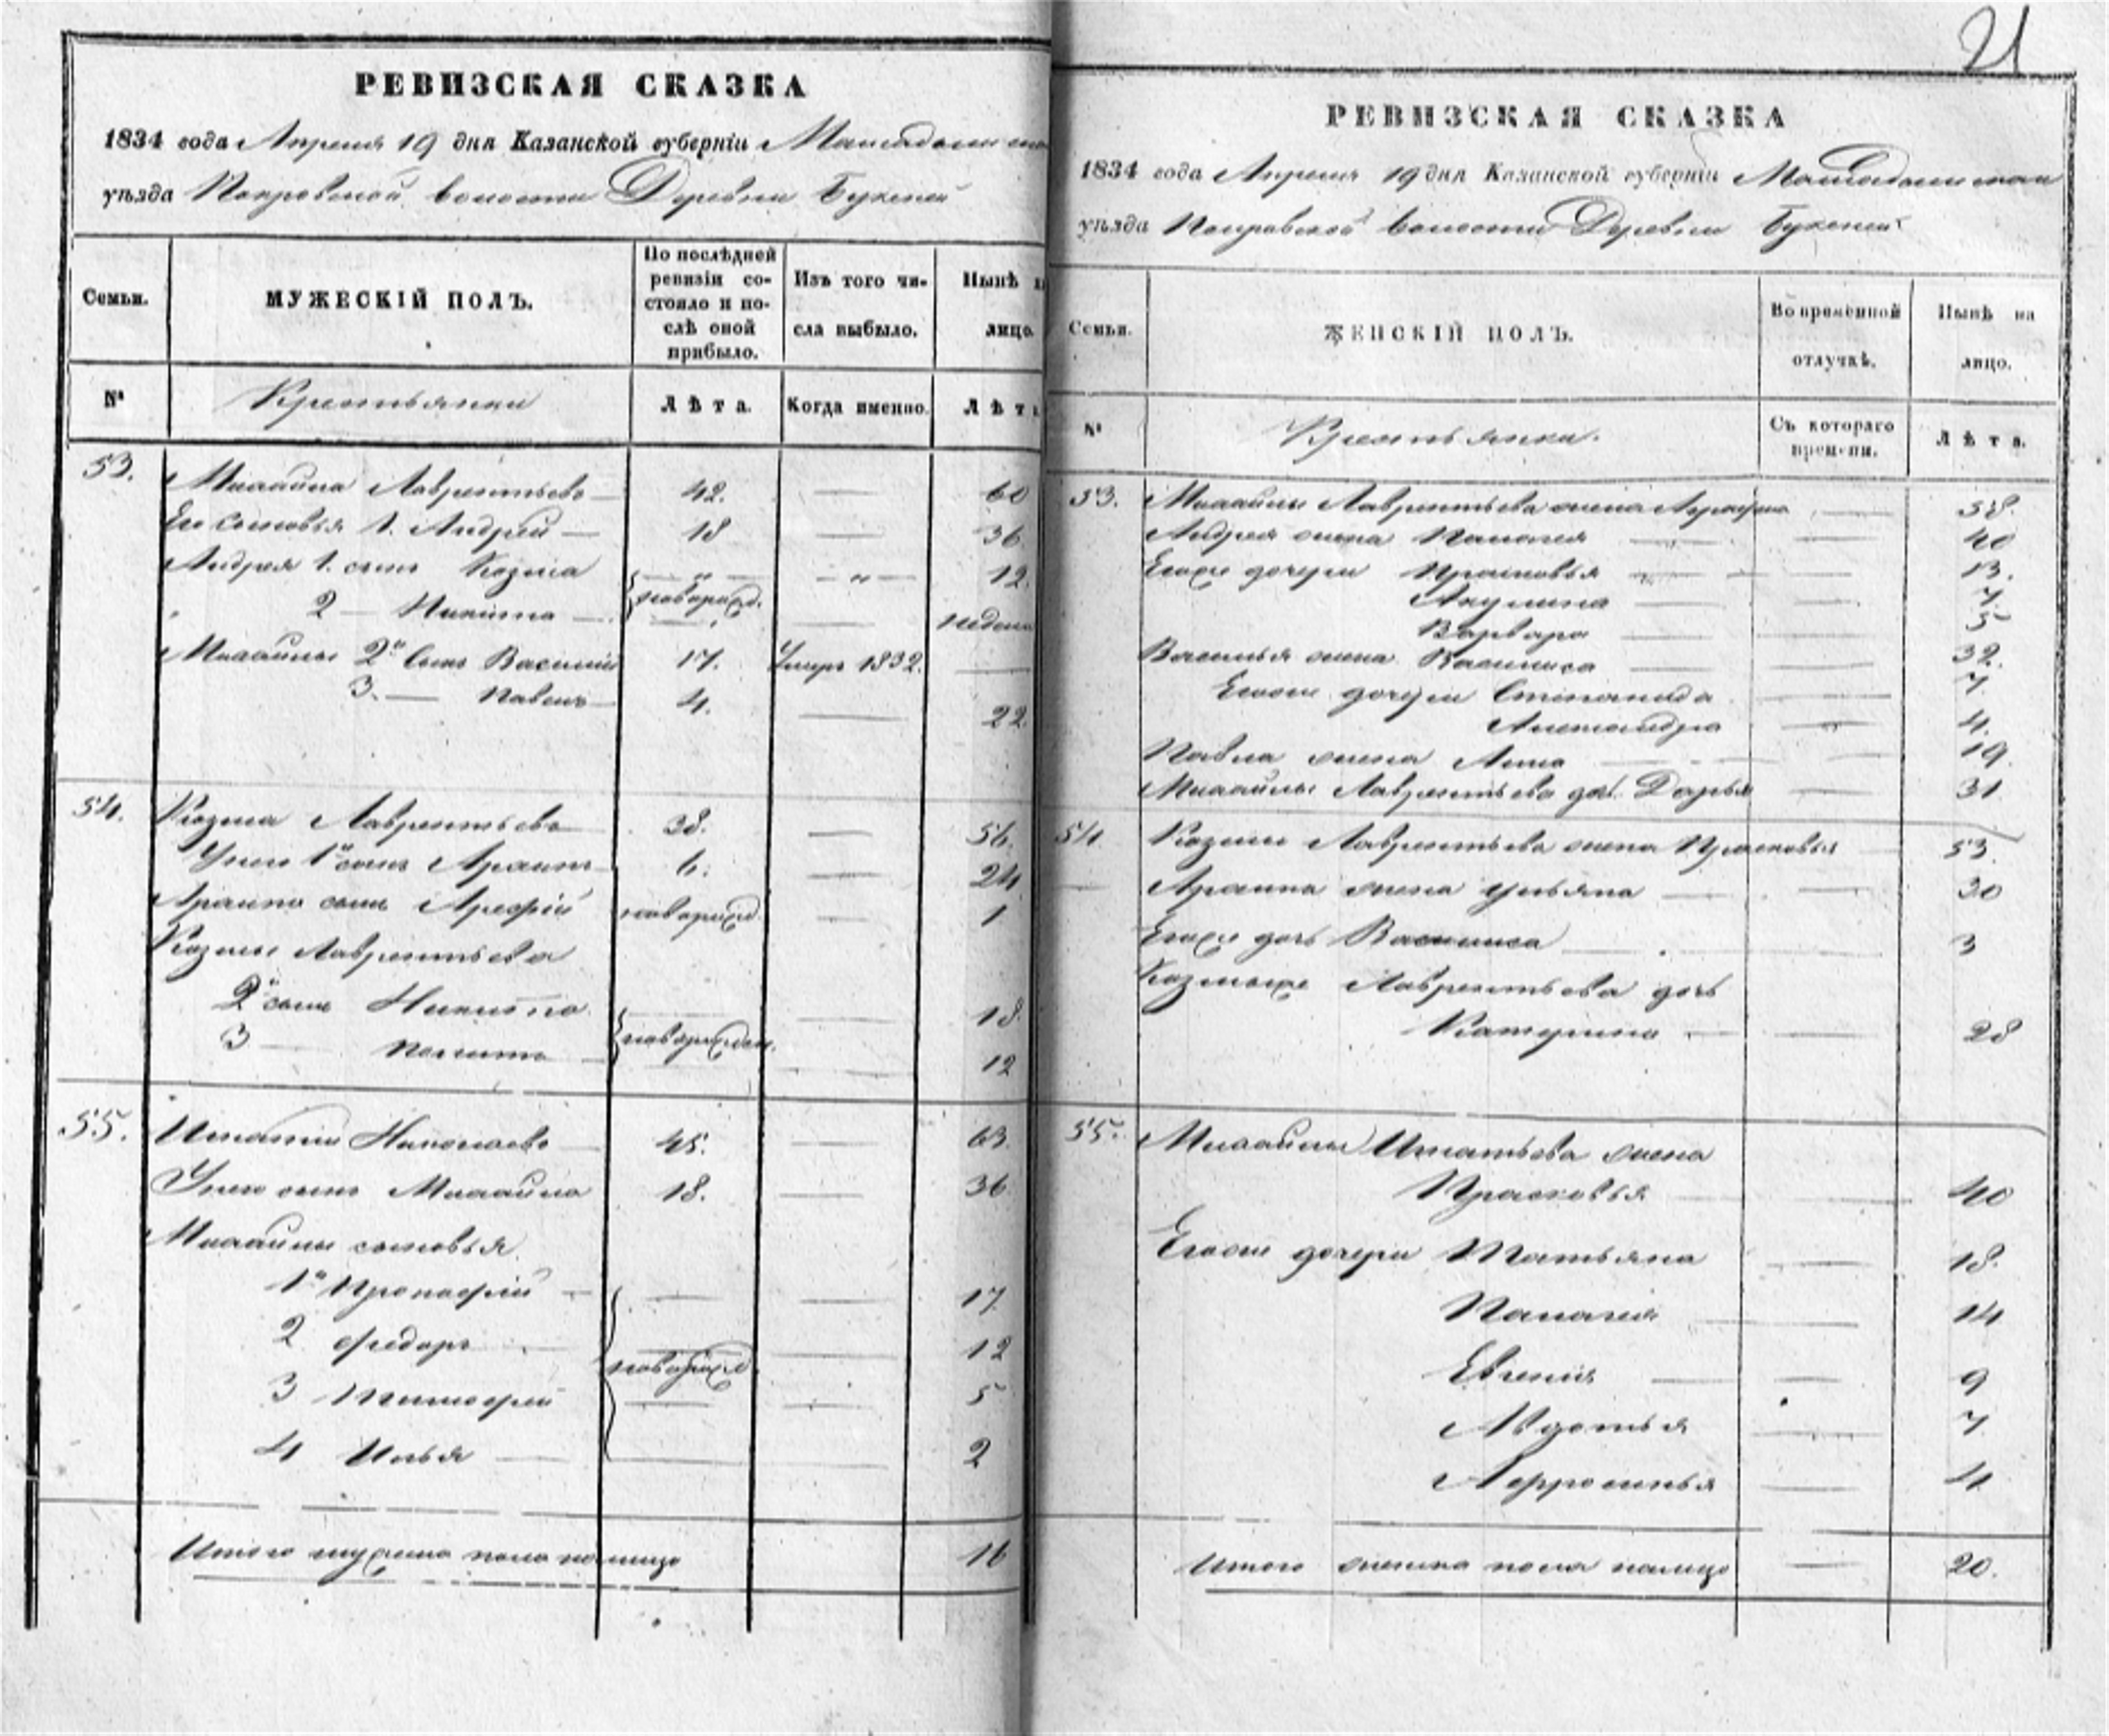 21
РЕВИЗСКАЯ СКАЗКА
1834 года Апреля 19 дня Казанской губерніи
уѣзда Покровской волости Деревни Букеней
Семьи.
МУЖЕСКІЙ ПОЛЪ.
По послѣдней ревизіи состояло и послѣ оной прибыло.
Изъ того числа выбыло.
Нынѣ на лицо.
№
Крестьянки
Лѣта.
Когда именно.
Лѣта
53. Михайла Лаврентьевъ 42. 60
Его сыновья 1. Андрей 18 36
Андрея 1. сынъ Козма " " 12.
2 Никита новорожд. недели
Михайлы 2й сынъ Василий 17. Умеръ 1832.
3. Павелъ 4. 22
54. Козма Лаврентьевъ 38. 56.
У него 1й сынъ Архипъ 6. 24
Архипа сынъ Арефій новорожд. 1
Козмы Лаврентьева
2й сынъ Никита 18.
3 новорожден. 12
55. Игнатій Николаевъ 45. 63.
У него сынъ Михайла 18. 36
Михайлы сыновья
1й Прокофій 17
2 Федоръ новорожд 12
3 Тимофей 5
4 Илья 2
Итого мужеска пола налицо 16
РЕВИЗСКАЯ СКАЗКА
1834 года Апреля 19 дня Казанской губерніи
уѣзда Покровской волости Деревни Букеней
Семьи.
ЖЕНСКІЙ ПОЛЪ.
Во временной отлучкѣ.
Нынѣ на лицо.
№
Крестьянки.
Съ котораго времени.
Лѣта.
53. Михайлы Лаврентьева жена 58.
Андрея жена Палагея 40
Егоже дочери Прасковья 13.
Акулина 7.
Варвара 5
Василья жена Василиса 32.
Егоже дочери Степанида 7.
Александра 4.
Павла жена Анна 19.
Михайлы Лаврентьева доч. Дарья 31
54 Козмы Лаврентьева жена Прасковья 53.
Архипа жена Ульяна 30
Егоже дочь Василиса 3
Козмыже Лаврентьева дочь
Катерина 28
55. Михайлы Игнатьева жена
Прасковья 40
Егоже дочери Татьяна 18.
Палагея 14
Евгения 9
Авдотья 7
4.
Итого женска пола налицо 20.